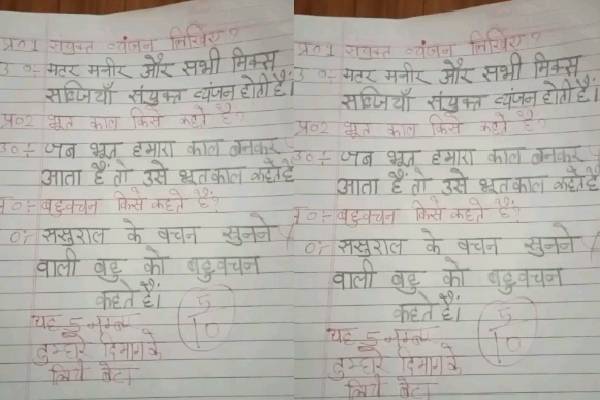 प्र०1 संयुक्त व्यंजन लिखिए?
उ०÷ मटर मनीर और सभी मिक्स
सब्जियाँ संयुक्त व्यंजन होती हैं।
प्र०2 भूत काल किसे कहते है?
उ०÷ जब भूत हमारा काल बनकर
आता है तो उसे भूतकाल कहते हैं
प्र०÷ बहुवचन किसे कहते है?
उ÷ ससुराल के बचन सुनने
वाली बहु को बहुवचन
कहते है।
5/10
यह 5 नम्बर
तुम्हारे दिमाग के
लिये बेटा
प्र०1 संयुक्त व्यंजन लिखिए?
उ०÷ मटर मनीर और सभी मिक्स
सब्जियाँ संयुक्त व्यंजन होती हैं।
प्र०2 भूत काल किसे कहते है?
उ०÷ जब भूत हमारा काल बनकर
आता है तो उसे भूतकाल कहते हैं
प्र०÷ बहुवचन किसे कहते है?
उ÷ ससुराल के बचन सुनने
वाली बहु को बहुवचन
कहते है।
5/10
यह 5 नम्बर
तुम्हारे दिमाग के
लिये बेटा